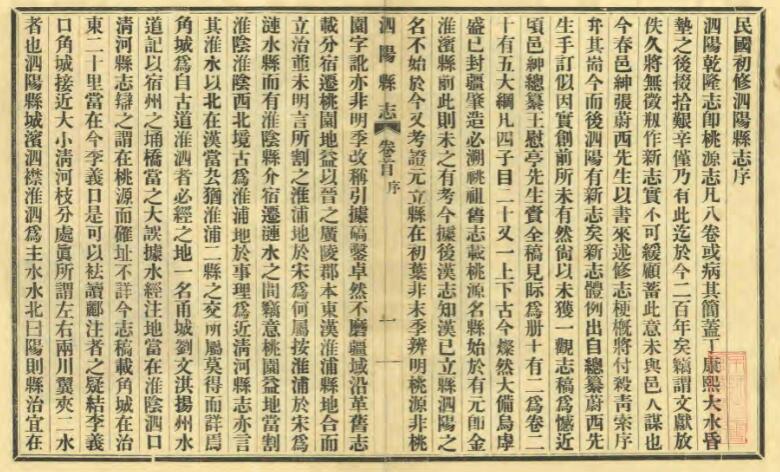 民國初修泗陽縣志序
泗陽乾隆志卽桃源志凡八卷或病其簡蓋丁康熙大水昏
墊之後掇拾艱辛僅乃有此迄於今二百年矣竊謂文獻放
佚久將無徵瓶作新志實不可緩顧蓄此意未與邑人謀也
今春邑紳張蔚西先生以書來述修志梗槪將付殺靑索序
弁其耑今而後泗陽有新志矣新志體例出自總纂蔚西先
生手訂似因實創前所未有然尙以未獲一觀志稿爲憾近
頃邑紳總纂王慰亭先生賫全稿見眎爲册十有二爲卷二
十有五大綱凡四子目二十又一上下古今燦然大備烏虖
盛已封疆肇造必溯祧祖舊志載桃源名縣始於有元卽金
淮濱縣前此則未之有考今據後漢志知漢已立縣泗陽之
名不始於今又考證元立縣在初葉非末季辨明桃源非桃
泗陽縣志 卷首 序 一
園字訛亦非明季改稱引據碻鑿卓然不磨疆域沿革舊志
載分宿遷桃園地益以晉之廣陵郡本東漢淮浦縣地合而
立治蓲未明言所割之淮浦地於宋爲何屬按淮浦於宋爲
漣水縣而有淮陰縣介宿遷漣水之間竊意桃園益地當割
淮陰淮陰西北境古爲淮浦地於事理爲近淸河縣志亦言
其淮水以北在漢當厹猶淮浦二縣之交所屬莫得而詳焉
角城爲自古道淮泗者必經之地一名甬城劉文淇揚州水
道記以宿州之埇橋當之大誤據水經注地當在淮陰泗口
淸河縣志辯之謂在桃源而確址不詳今志稿載角城在治
東二十里當在今李義口是可以袪讀酈注者之疑結李義
口角城接近大小淸河枝分處眞所謂左右兩川翼夾二水
者也泗陽縣城濱泗襟淮泗爲主水水北曰陽則縣治宜在